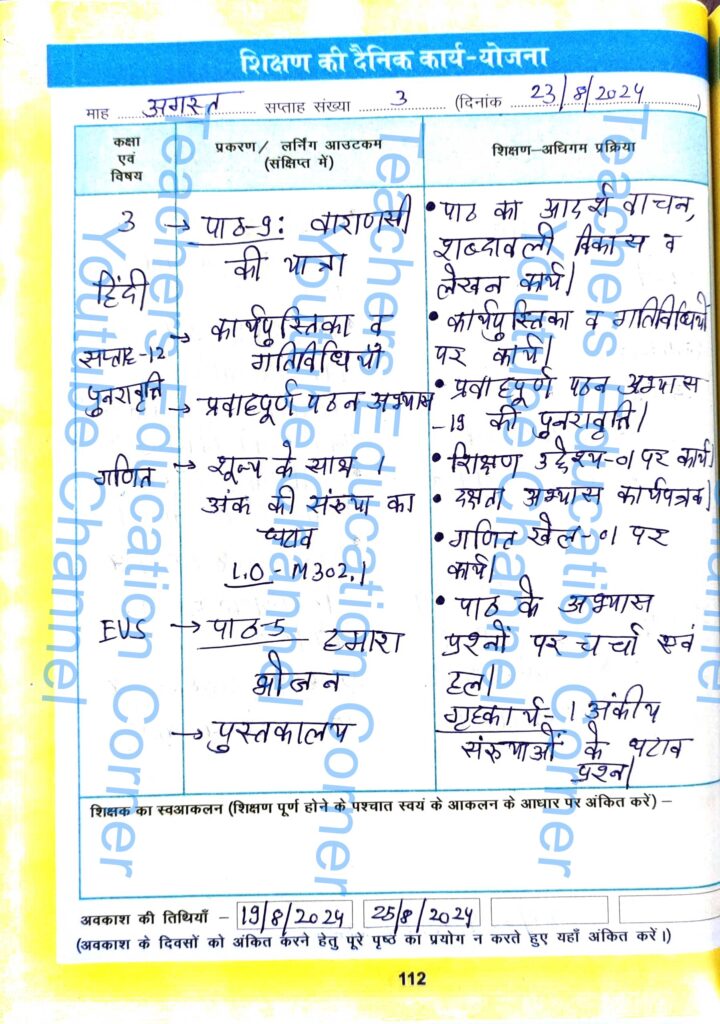 शिक्षण की दैनिक कार्य-योजना
माह अगस्त सप्ताह संख्या 3 (दिनांक 23/8/2024)
कक्षा एवं विषय
प्रकरण/ लर्निंग आउटकम (संक्षिप्त में)
शिक्षण-अधिगम प्रक्रिया
3
हिंदी
सप्ताह-12
पुनरावृत्ति
→ पाठ-9: वाराणसी
की यात्रा
→ कार्यपुस्तिका व
गतिविधियाँ
→ प्रवाहपूर्ण पठन अभ्यास
• पाठ का आदर्श वाचन,
शब्दावली विकास व
लेखन कार्य।
• कार्यपुस्तिका व गतिविधियों
पर कार्य।
• प्रवाहपूर्ण पठन अभ्यास
-19 की पुनरावृत्ति।
गणित
→ शून्य के साथ 1
अंक की संख्या का
घटाव
L.O - M302.1
• शिक्षण उद्देश्य-01 पर कार्य।
• दक्षता अभ्यास कार्यपत्रक।
• गणित खेल-01 पर
कार्य।
EVS
→ पाठ-5 हमारा
भोजन
→ पुस्तकालय
• पाठ के अभ्यास
प्रश्नों पर चर्चा एवं
हल।
गृहकार्य- 1 अंकीय
संख्याओं के घटाव
प्रश्न।
शिक्षक का स्वआकलन (शिक्षण पूर्ण होने के पश्चात स्वयं के आकलन के आधार पर अंकित करें) –
अवकाश की तिथियाँ – 19/8/2024 25/8/2024
(अवकाश के दिवसों को अंकित करने हेतु पूरे पृष्ठ का प्रयोग न करते हुए यहाँ अंकित करें।)
112
Teachers Education Corner
Youtube Channel
Teachers Education Corner
Youtube Channel
Teachers Education Corner
Youtube Channel